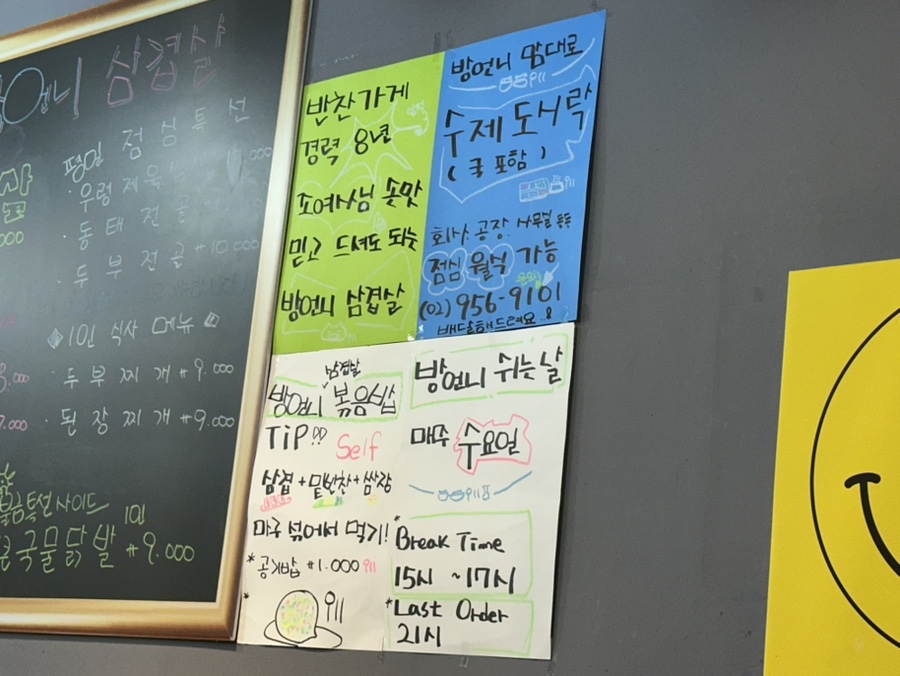 언니 삼겹살
평일 점심특선
우렁제육
동태전골
두부전골 ₩10.000
◈1인 식사 메뉴◈
두부찌개 ₩9.000
된장찌개 ₩9.000
특선사이드
1인
국물닭발 ₩9.000
반찬가게
경력 8년
조여사님 손맛
믿고 드셔도 되는
방언니 삼겹살
방언니 맘대로
수제도시락
(국 포함)
회사. 공장. 사무실 등등
점심 월식 가능
(02) 956-9101
배달해드려요
삼겹살
방언니 볶음밥
TiP!! Self
삼겹+밑반찬+쌈장
마구 넣어서 먹기!
*공기밥 ₩1.000
방언니 쉬는날
매주 수요일
*Break Time
15시 ~17시
*Last Order
21시